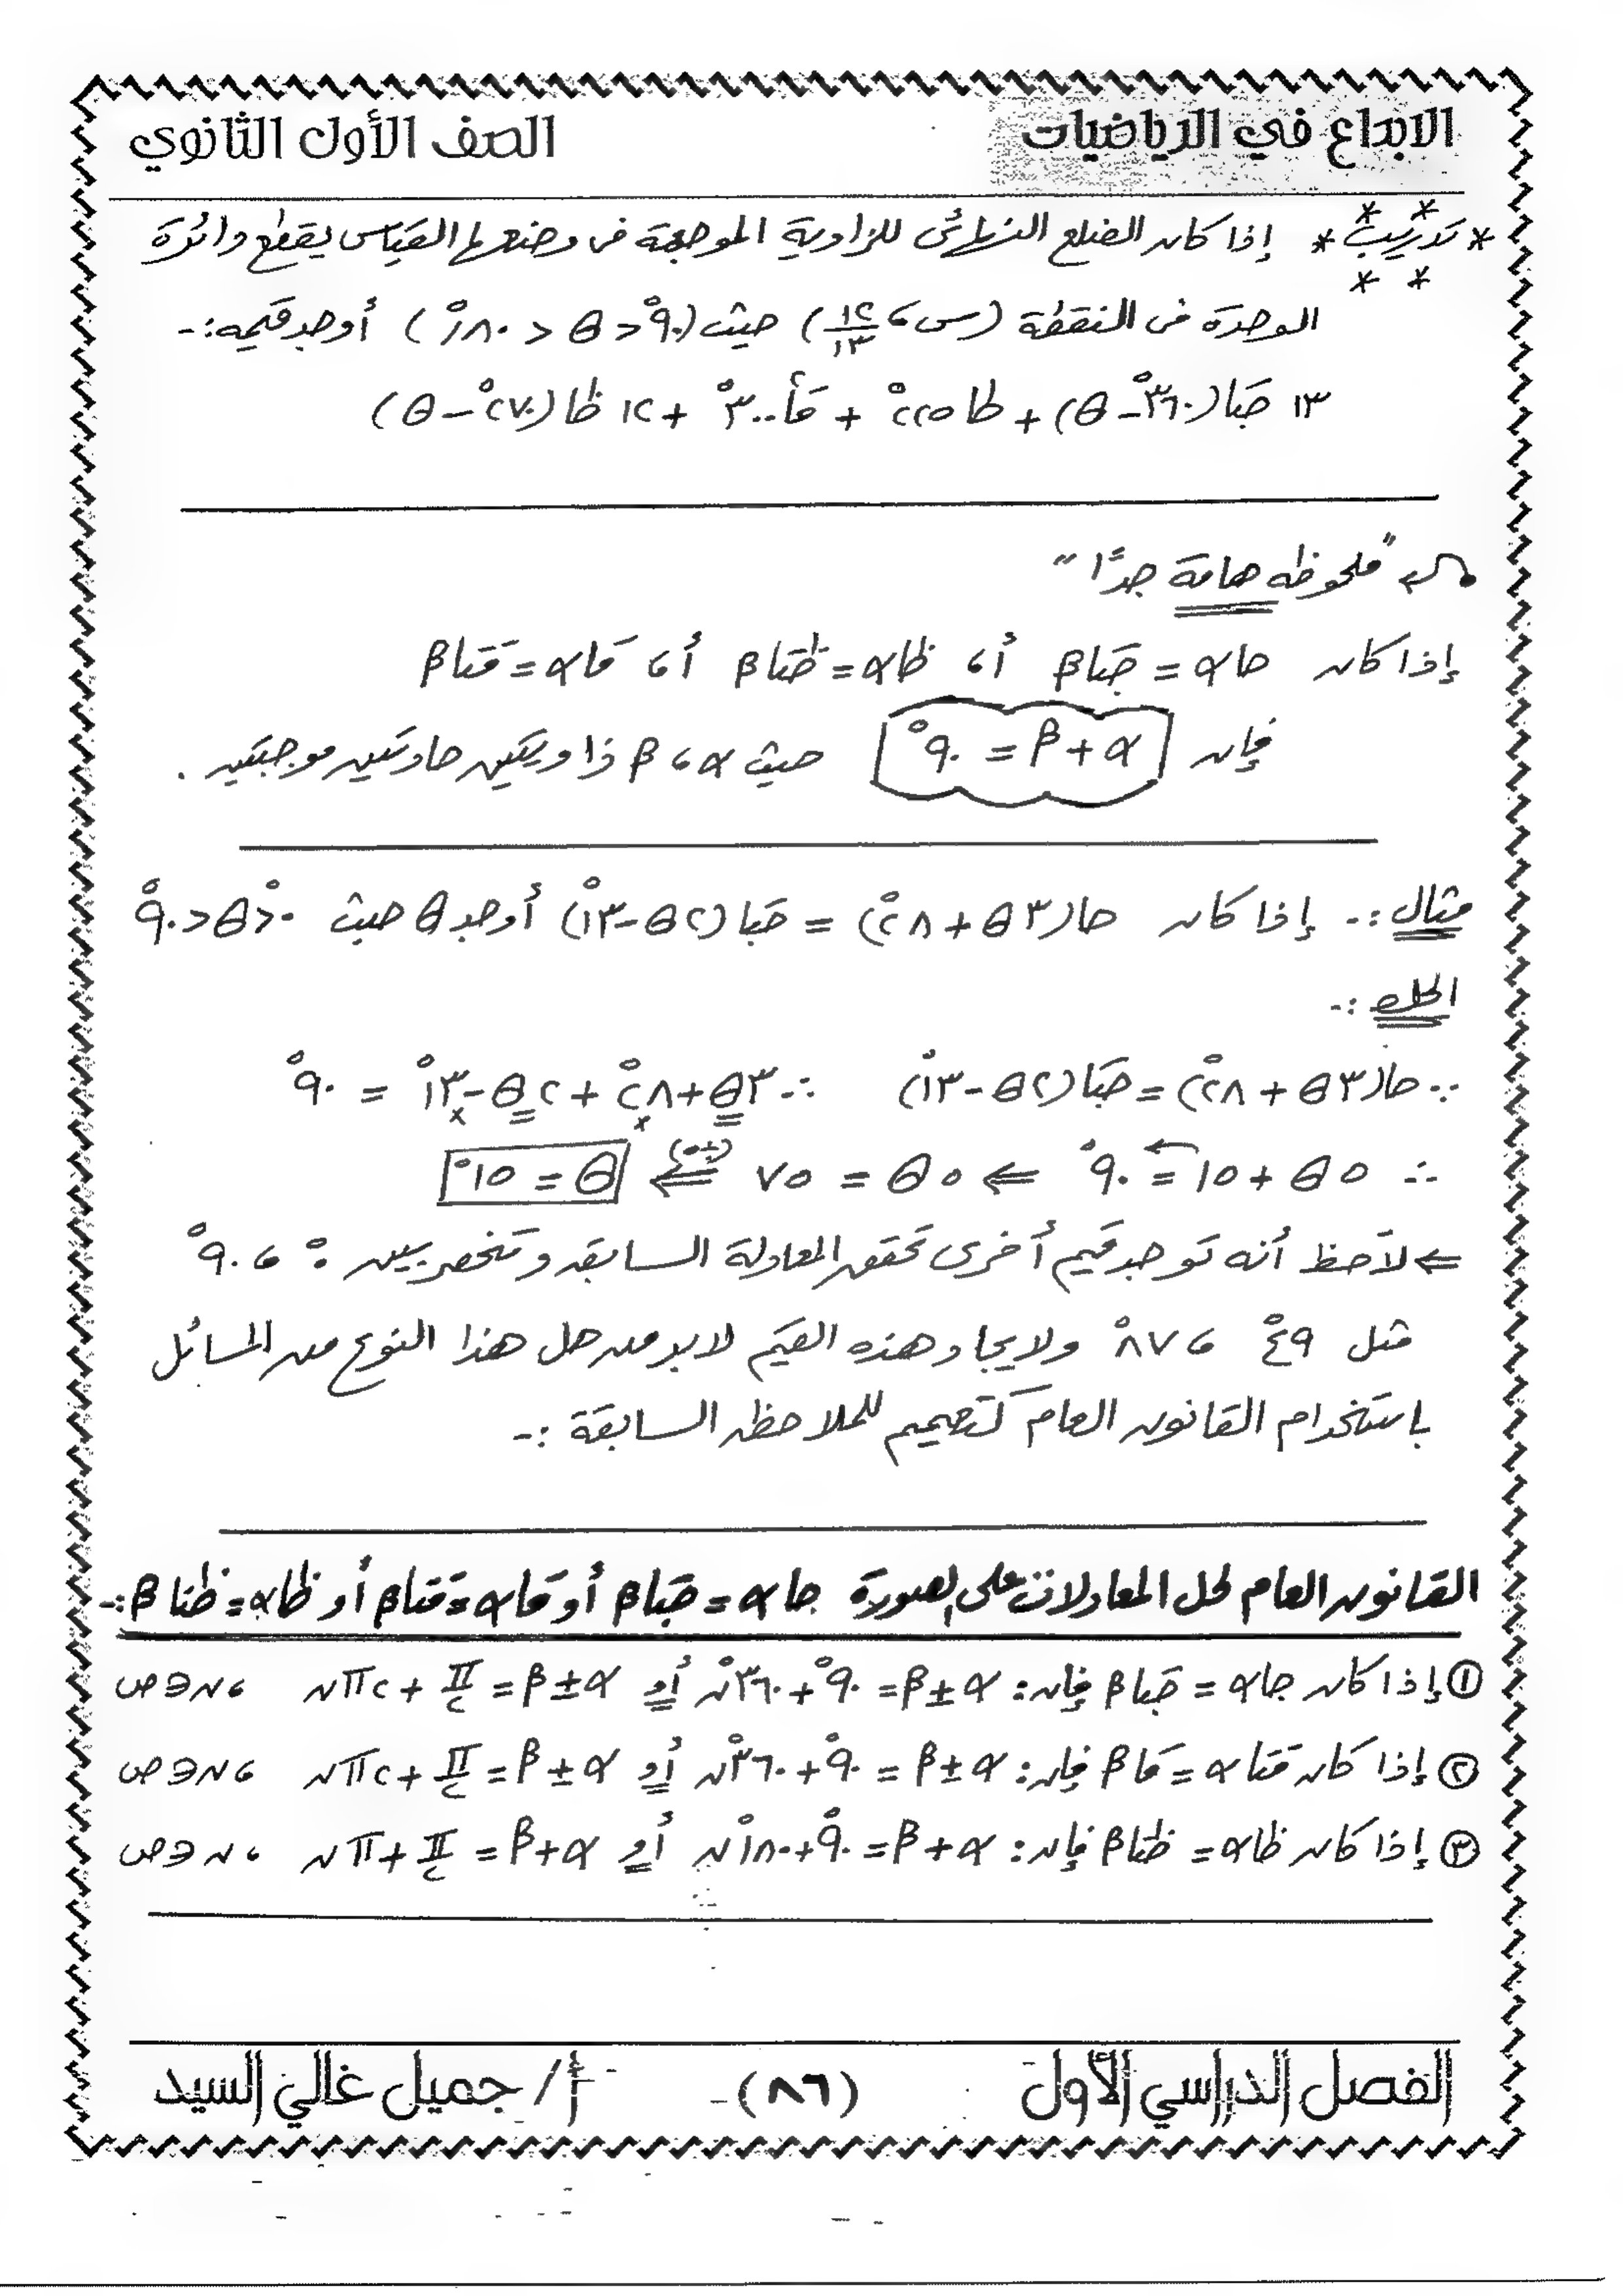 الابداع في الرياضيات
الصف الأول الثانوي
* تدريب * إذا كان الضلع النهائى للزاوية الموجهة فى وضعها القياسى يقطع دائرة
الوحدة فى النقطة (س، ١٢/١٣) حيث (٩٠° < θ < ١٨٠°) أوجد قيمة :-
١٣ جتا(٣٦٠° - θ) + طا ٢٢٥° + قا٢ ٣٠٠° + ١٢ ظا(٢٧٠° - θ)
"ملحوظه هامة جدًا"
إذا كان جا α = جتا β أ، ظا α = ظتا β أ، قا α = قتا β
فإن α + β = ٩٠° حيث α ، β زاويتين حادتين موجبتين .
مثال :- إذا كان جا(٣θ + ٢٨°) = جتا(٢θ - ١٣°) أوجد θ حيث ٠° < θ < ٩٠°
الحل :-
∵ جا(٣θ + ٢٨°) = جتا(٢θ - ١٣°) ∴ ٣θ + ٢٨° + ٢θ - ١٣° = ٩٠°
∴ ٥θ + ١٥ = ٩٠° ⇐ ٥θ = ٧٥ ⇐ (÷٥) θ = ١٥°
⇐ لاحظ أنه توجد قيم أخرى تحقق المعادلة السابقه وتنحصر بين ٠° ، ٩٠°
مثل ٤٩° ، ٨٧° ولايجاد هذه القيم لابد من حل هذا النوع من المسائل
باستخدام القانون العام كتعميم للملاحظه السابقة :-
القانون العام لحل المعادلات على الصورة جا α = جتا β أو قا α = قتا β أو ظا α = ظتا β :-
① إذا كان جا α = جتا β فإن : α ± β = ٩٠° + ٣٦٠°ن أو α ± β = π/٢ + ٢πن ، ن ∈ ص
② إذا كان قتا α = قا β فإن : α ± β = ٩٠° + ٣٦٠°ن أو α ± β = π/٢ + ٢πن ، ن ∈ ص
③ إذا كان ظا α = ظتا β فإن : α + β = ٩٠° + ١٨٠°ن أو α + β = π/٢ + πن ، ن ∈ ص
الفصل الدراسي الأول
(٨٦)
أ/ جميل غالي السيد